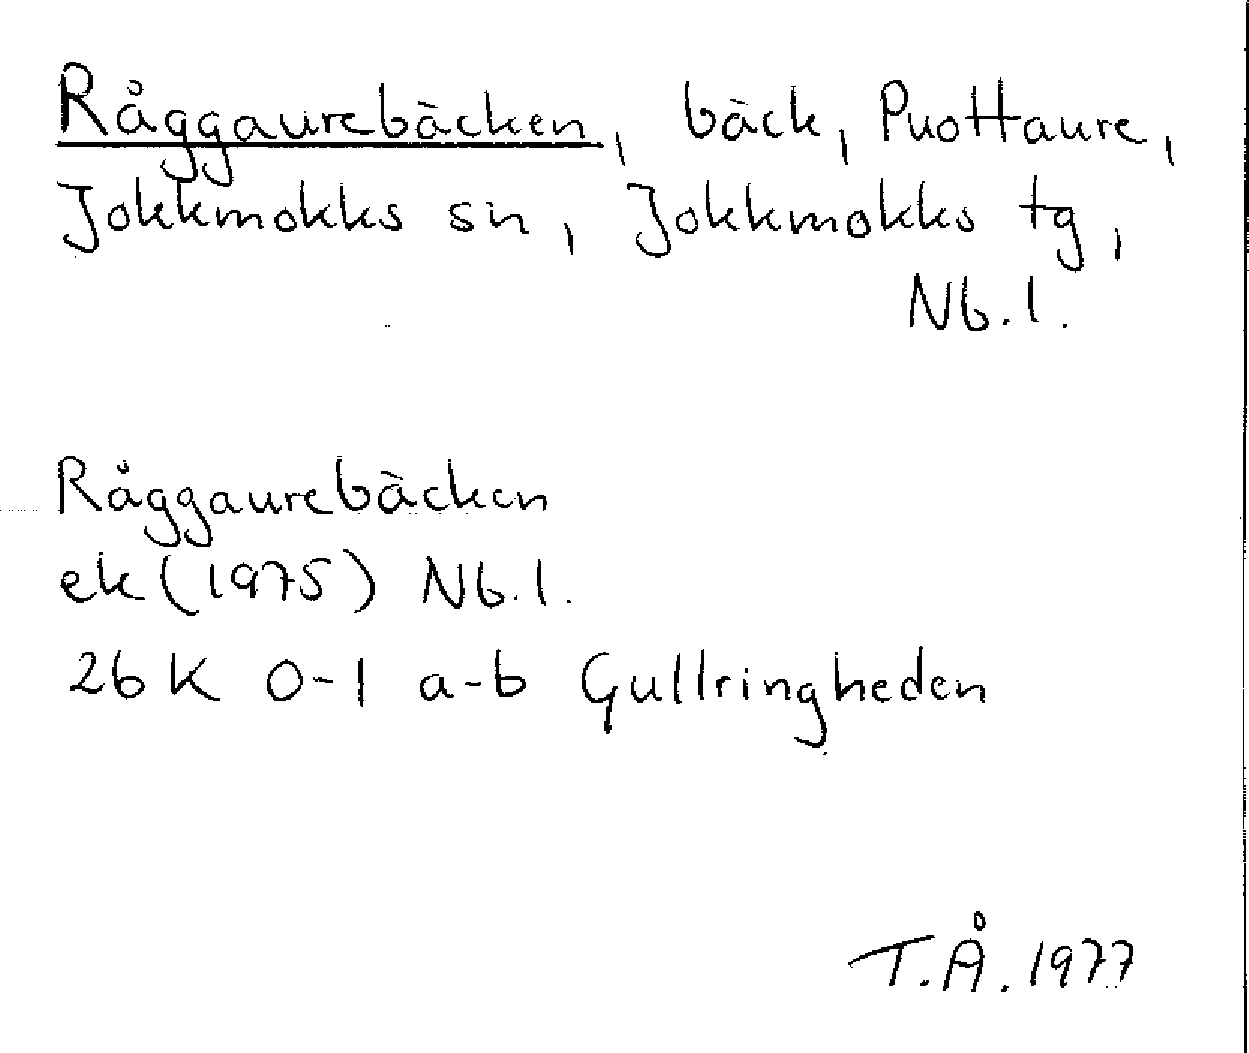 Råggaurebäcken, bäck, Puottaure,
Jokkmokks sn, Jokkmokks tg,
Nb.l.
Råggaurebäcken
ek (1975) Nb.l.
26 K 0-1 a-b Gullringheden
T.Å. 1977